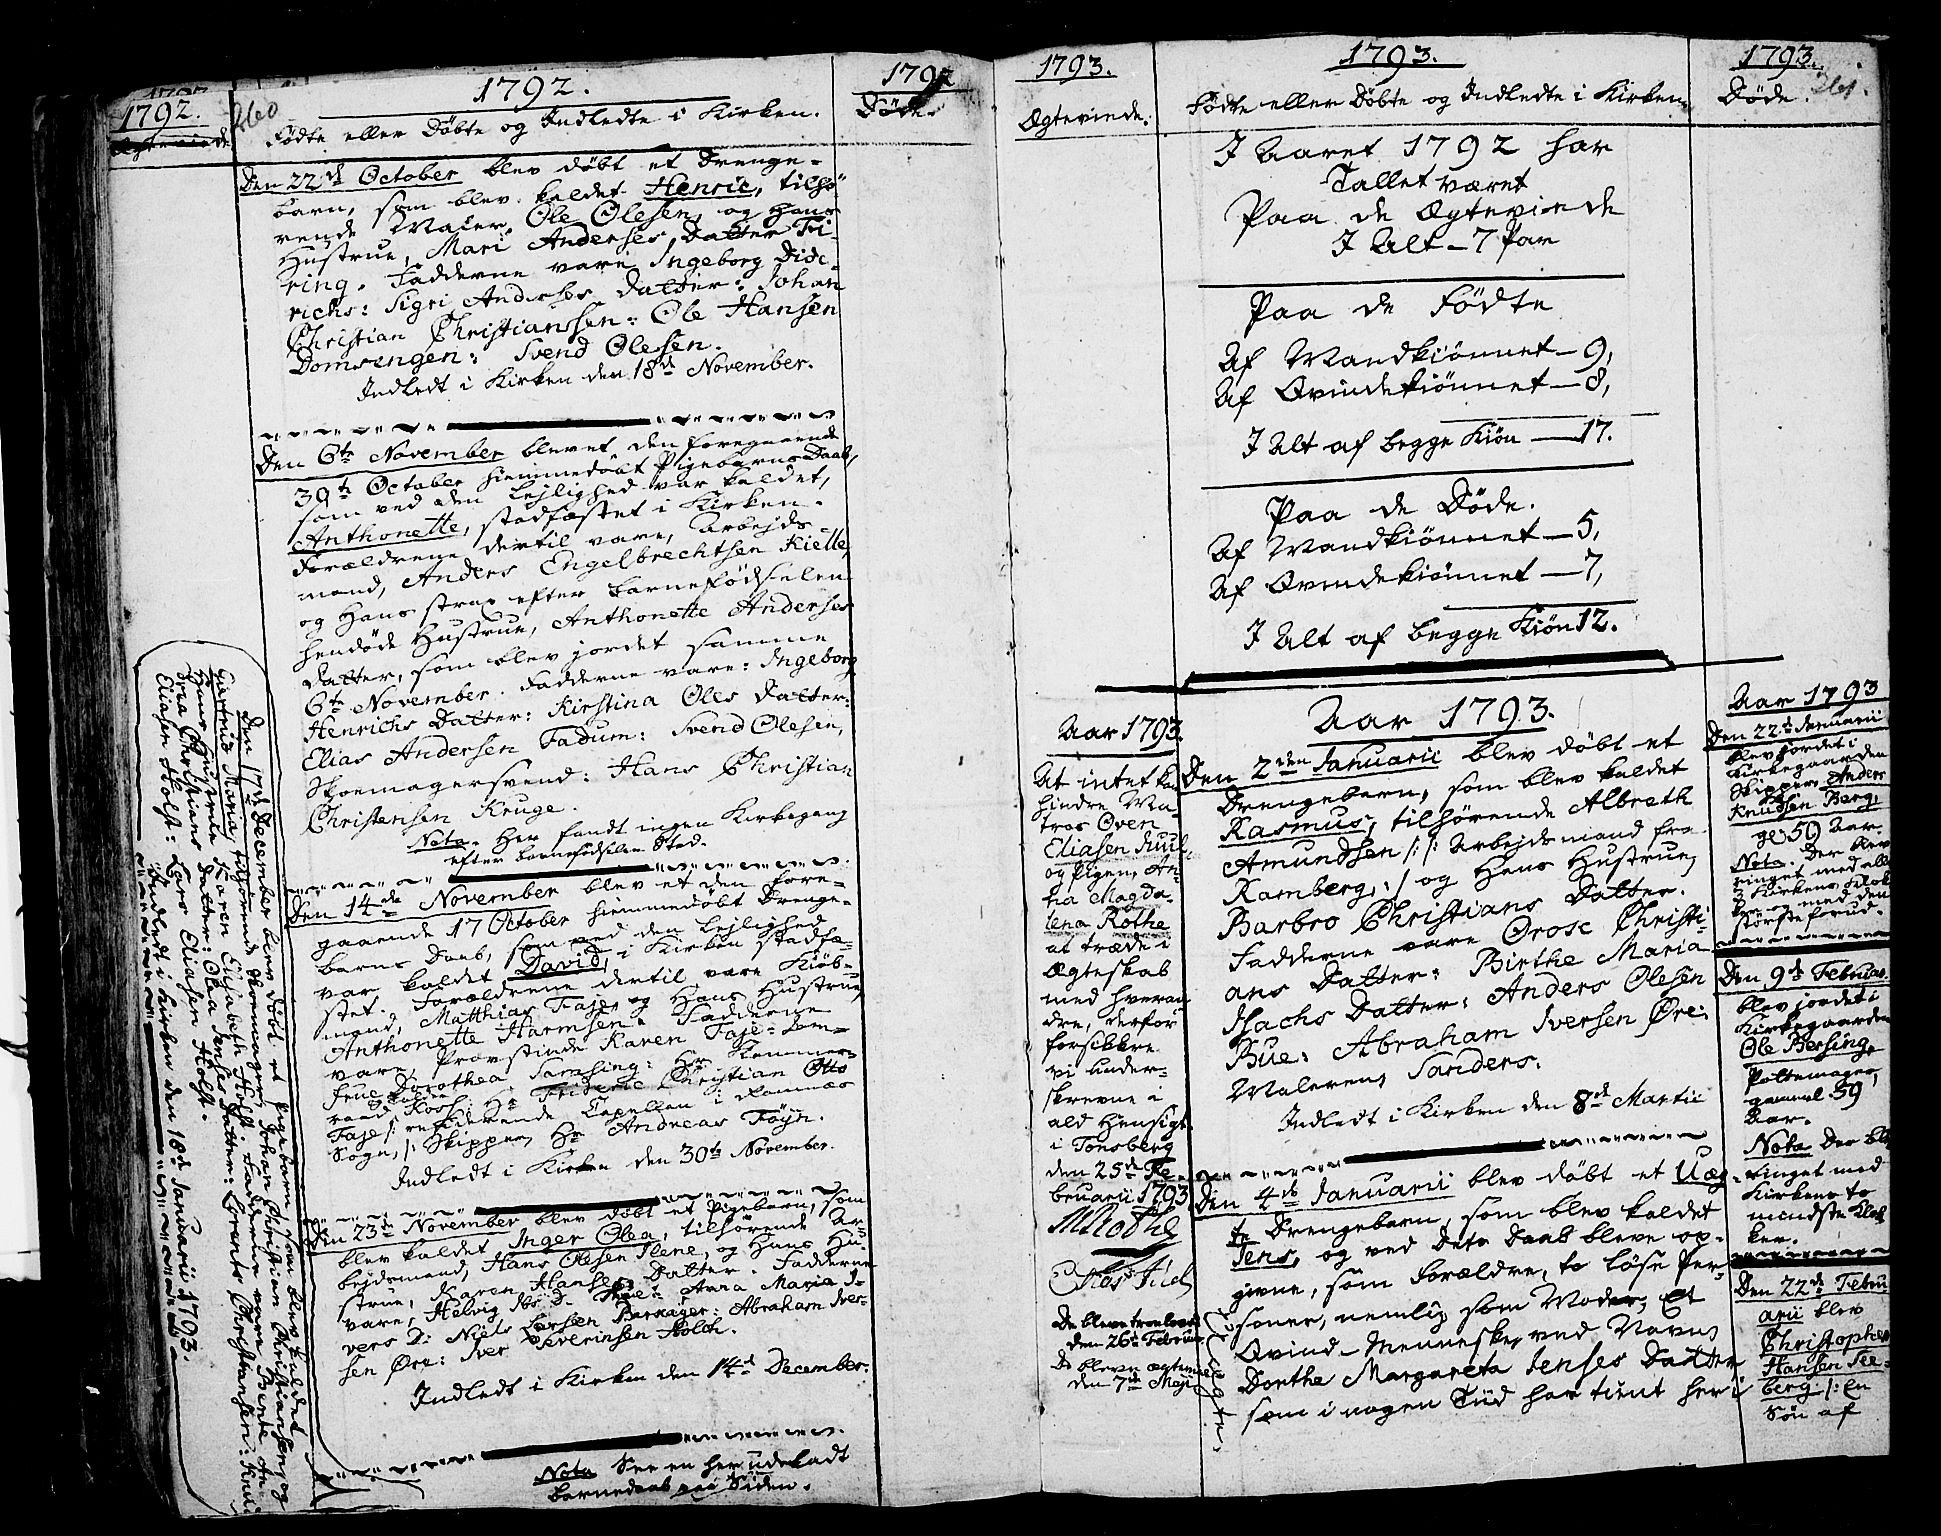 1792.
Ægteviede
260
1792.
Fødte eller Døbte og Indledte i Kirken.
1792
Døde.
Den 22de October blev døbt et Drenge-
barn, som blev kaldet Henric, tilhø-
rende Maler, Ole Olesen, og hans
Hustrue, Mari Anderses Datter
ring. Fadderne vare Ingeborg Dide-
richs: Sigri Anderses Datter: Johan
Christian Christianssen: Ole Hansen
Domsengen: Svend Olesen.
Indledt i Kirken den 18de November.
Den 6te November blevet den foregaaende
30te October hiemmedøbt Pigebarns Daab,
som ved den Lejlighed var kaldet,
Anthonette, stadfæstet i Kirken.
Forældrene dertil vare, Arbejds-
mand, Anders Engelbrechtsen Kielle,
og Hans strax efter Barnefødselen
hendøde Hustrue, Anthonette Anderses
Datter, som blev jordet samme
6te November. Fadderne vare: Ingeborg
Henrichs Datter: Kirstina Oles Datter:
Elias Andersen Fadum: Svend Olesen,
Skoemagersvend: Hans Christian
Christensen Kruge.
Nota. Her fandt ingen Kirkegang
efter barnefødselen Sted.
Den 14de November blev et den fore-
gaaende 17 October hiemmedøbt Drenge-
barns Daab, som ved den Lejlighed
var kaldet David, i Kirken stadfæ-
stet. Forældrene dertil vare Kiøb-
mand, Matthias Faje, og Hans Hustrue
Anthonette Harmsen. Fadderne
vare, Provstinde Karen Faje: Jom-
frue Dorothea Samsing: Hr Kammer-
raad, Koss: Hr Frideric Christian Otto
Faje /: residerende Capellan i Ramnæs
Sogn, :/ Skipper, Hr Andreas Føyn.
Indledt i Kirken den 30te November.
Den 23de November blev døbt et Pigebarn, som
blev kaldet Inger Olea, tilhørende Ar-
bejdsmand, Hans Olesen Ilene, og Hans Hu-
strue, Karen Hanses Datter. Fadderne
vare, Helvig Ibs D. Anna Maria I-
vers D: Niels Larssen Barnager: Abraham Iver-
sen Øre: Iver Severinsen Holch.
Indledt i Kirken den 14de December.
Nota See en her udeladt
barnedaab paa Siden.
Den 17de December blev døbt et Pigebarn, som blev kaldet
Giertrud Maria, tilhørende Skoemager, Johan Christian Christiansen, og
Hans Hustrue Karen Elisabeth Holst. Fadderne vare Bente An-
drea Christians Datter: Olea Jenses Datter: Lorents Christiansen: Knud
Eliasen Holst: Lars Eliasen Holst.
Indledt i Kirken den 18de Januarii 1793.
1793.
Ægteviede.
1793.
Fødte eller Døbte og Indledte i Kirken.
1793.
Døde.
261.
I Aaret 1792 har
Tallet været
Paa de Ægteviede
I Alt - 7 Par
Paa de Fødte
Af Mandkiønnet - 9,
Af Qvindekiønnet - 8,
I Alt af begge Kiøn - 17.
Paa de Døde.
Af Mandkiønnet - 5,
Af Qvindekiønnet - 7,
I Alt af begge Kiøn 12.
Aar 1793.
At intet kan
hindre Ma-
tros Oven
Eliasen Juul,
og Pigen, An-
na Magda-
lena Rothe
at træde i
Ægteskab
med hveran-
dre, derfor
forsikkre
vi under-
skrevne i
ald Hensigt.
i Tønsberg
den 25de Fe-
bruarii 1793
MRothe
De bleve trolovede
den 26de Februar
De bleve ægteviede
den 7de Maji
Aar 1793.
Den 2den Januarii blev døbt et
Drengebarn, som blev kaldet
Rasmus, tilhørende Albreth
Amundsen /: Arbejdsmand fra
Ramberg, :/ og Hans Hustrue,
Barbro Christians Datter.
Fadderne vare Orose Christi-
ans Datter: Birthe Maria
Isachs Datter: Anders Olesen
Bue: Abraham Iversen Øre:
Maleren, Sanders.
Indledt i Kirken den 8de Martii
Den 4de Januarii blev døbt et Uæg-
te Drengebarn, som blev kaldet
Jens, og ved dets Daab bleve op-
givne, som Forældre, to løse Per-
soner, nemlig som Moder, Et
Qvind-Menneske, ved Navn,
Dorthe Margareta Jenses Datter
som i nogen Tiid har tient her i
Aar 1793
Den 22de Januarii
blev jordet i
Kirkegaarden
Skipper, Anders
Knudsen Berg,
50 Aar.
Nota. Der blev
ringet med alle
3 Kirkens Klok-
ker, og med den
største forud.
Den 9de Februar.
blev jordet i
Kirkegaarden
Ole Bersing,
Pottemager,
gammel 59
Aar.
Nota Der blev
ringet med
Kirkens to
mindste Klok-
ker.
Den 22de Febru-
arii blev
Christopher
Hansen See-
berg /: En
Søn af